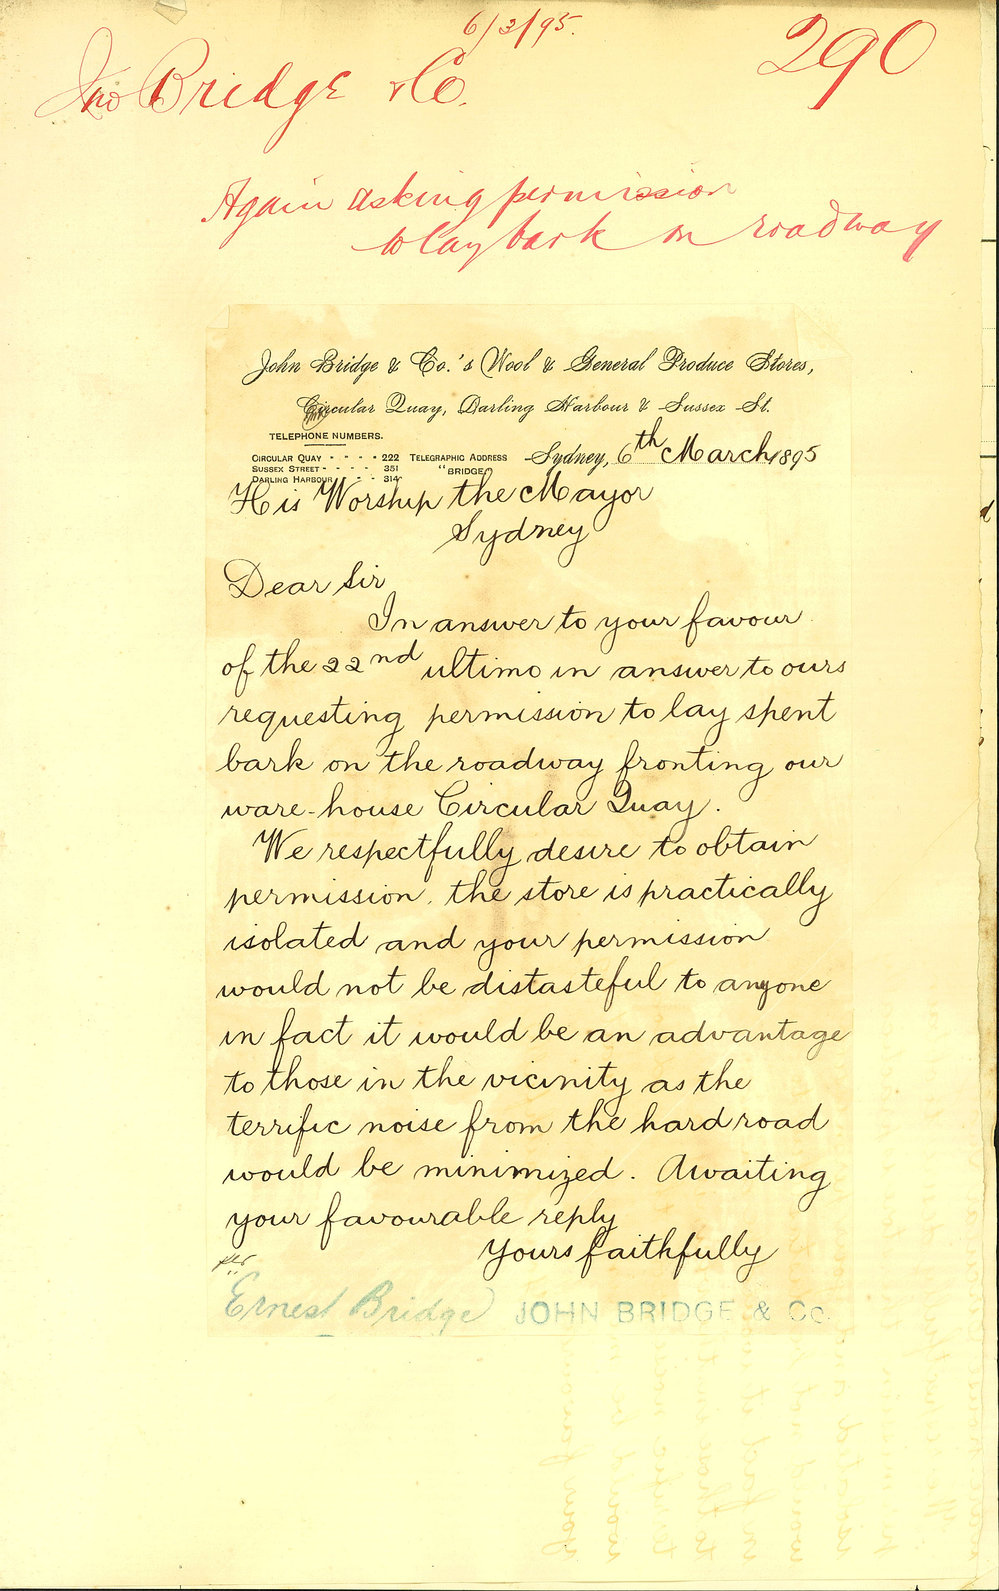 6/3/95.
290
Jno Bridge & Co.
Again asking permission
to lay bark on roadway
John Bridge & Co.'s Wool & General Produce Stores,
Circular Quay, Darling Harbour & Sussex St.
TELEPHONE NUMBERS.
CIRCULAR QUAY - - - - 222
SUSSEX STREET - - - - 351
DARLING HARBOUR - - 314
TELEGRAPHIC ADDRESS
"BRIDGE"
Sydney, 6th March 1895
His Worship the Mayor
Sydney
Dear Sir
In answer to your favour
of the 22nd ultimo in answer to ours
requesting permission to lay spent
bark on the roadway fronting our
ware-house Circular Quay.
We respectfully desire to obtain
permission, the store is practically
isolated and your permission
would not be distasteful to anyone
in fact it would be an advantage
to those in the vicinity as the
terrific noise from the hard road
would be minimized. Awaiting
your favourable reply
Yours faithfully
per
Ernest Bridge JOHN BRIDGE & Co.